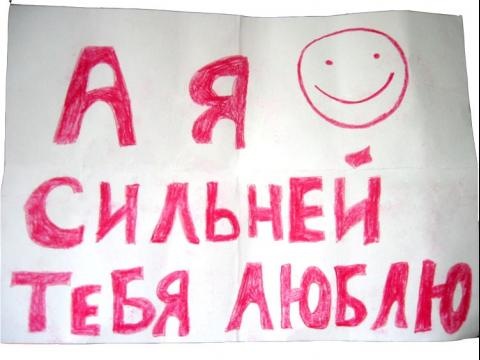 А Я
СИЛЬНЕЙ
ТЕБЯ ЛЮБЛЮ